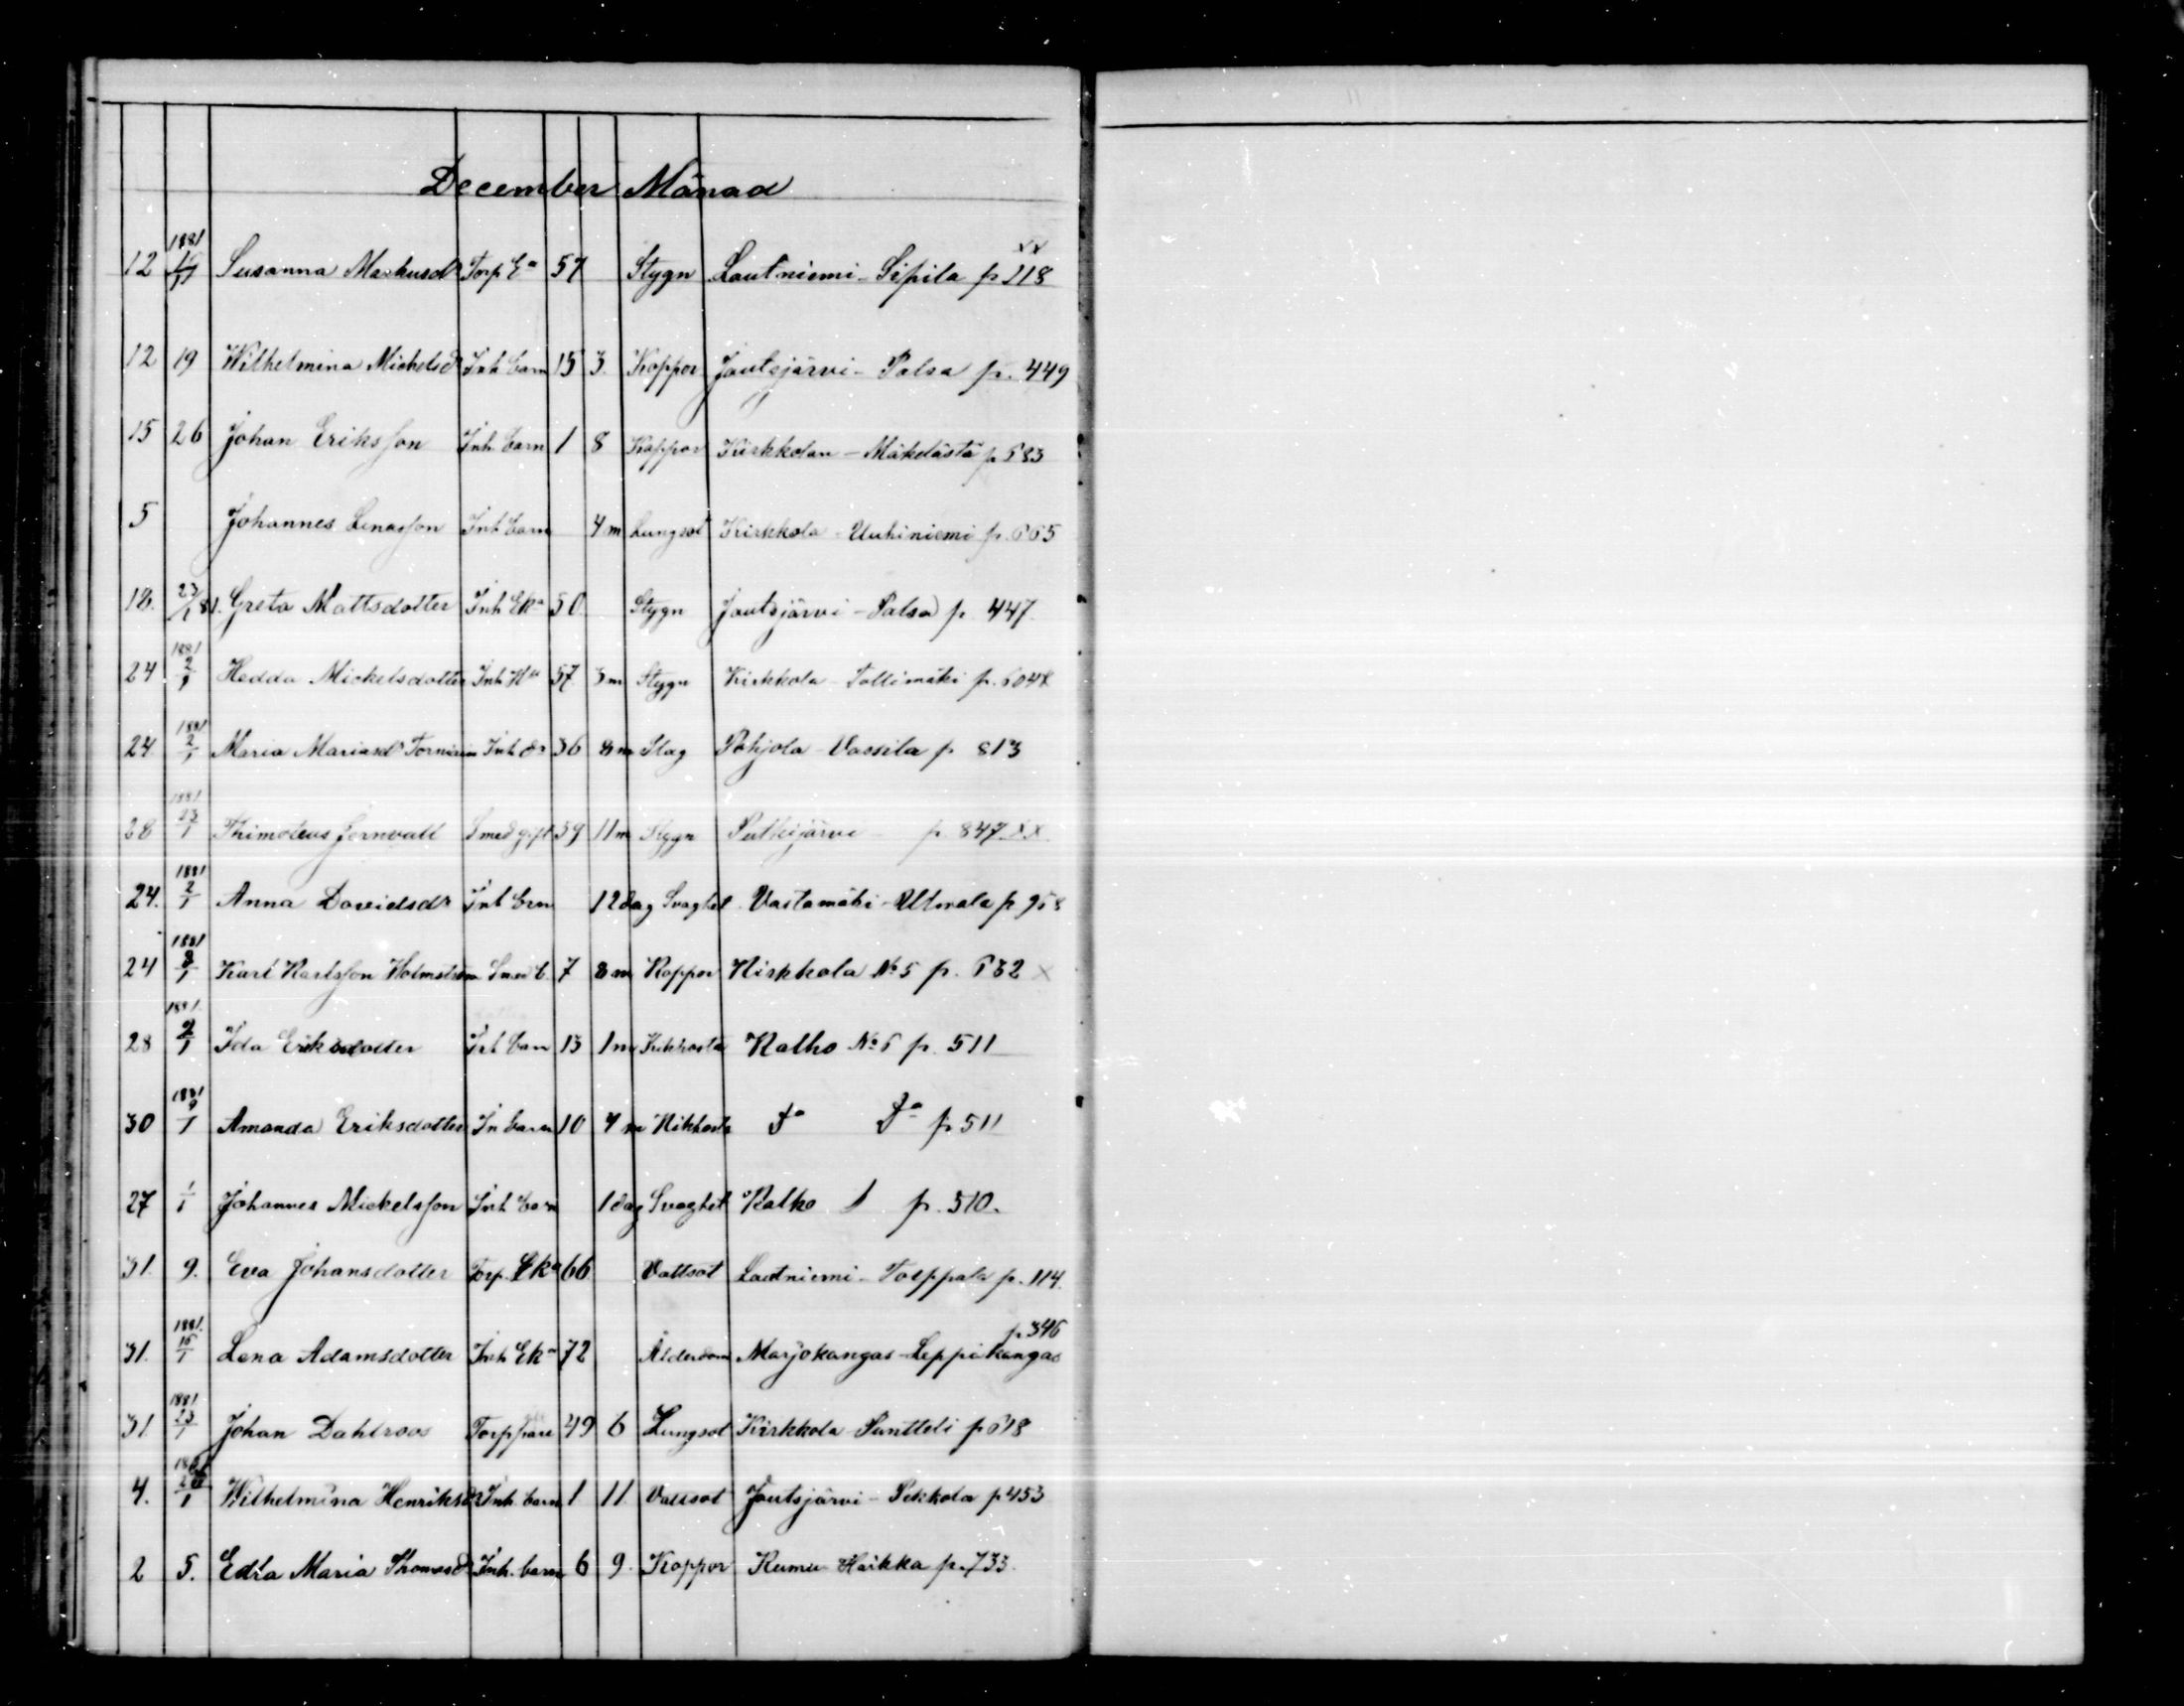 December Månad
12 1881 Susanna Markusdr Torp Ea 57 Stygn Lautniemi - Sipila p 118 xx
12 19 Wilhelmina Michelsdr Inh barn 15 3. Koppor Joutsjärvi - Palsa p. 449
15 26 Johan Eriksson Inh barn 1 8 Koppor Kirkkolan - Mäkelästä p 583
5 Johannes Lenasson Inh barn 4 m Lungsot Kirkkola - Uuhiniemi p. 665
18. 23/1 81. Greta Mattsdotter Inh Eka 50 Stygn Joutsjärvi - Palsa p 447
24 1881 2/1 Hedda Mickelsdotter Inh Hu 57 3m Stygn Kirkkola - Tallimäki p.
24 1881 2/1 Maria Mariasdr Torniain Inh dr 36 8m Slag Pohjola - Vassila p 813
28 1881 23/1 Thimoteus Jernvall Smed gift 59 11m Stygn Putkijärvi p 847 xx
24. 1881 2/1 Anna Davidsdr Inh brn 12 dag Svaghet Vastamäki - p 958
24 1881 8/1 Karl Karlsson Holmström Smed b. 7 8m Koppor Kirkkola No 5 p. 632 x
28 1881. 2/1 Ida Eriksdotter Inh barn 13 1m Kikhosta Kalho No 6 p. 511
30 1881 9/1 Amanda Eriksdotter In barn 10 4 m Kikhosta Do Do p 511
27 1/1 Johannes Mickelsson Inh barn 1 dag Svaghet Kalho 1 p. 510.
31. 9. Eva Johansdotter Torp. Eka 66 Vattsot Lautniemi - Torppala p. 114.
p. 346
31. 1881. 15/1 Lena Adamsdotter Inh Eka 72 Ålderdom Marjokangas - Leppikangas
31. 1881 23/1 Johan Dahlroos Torppare 49 6 Lungsot Kirkkola - Puntteli p 618
4. Wilhelmina Henriksdr Inh. barn 1 11 Vattsot Joutsjärvi - Pekkola p 453
2 5. Edla Maria Thomasdr Inh. barn 6 9. Koppor Rumu - Haikka p. 733.